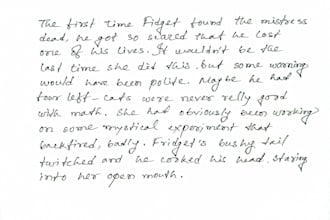 The first time Fidget found the mistress
dead, he got so scared that he lost
one of his lives. It wouldn't be the
last time she did this. but some warning
would have been polite. Maybe he had
four left - cats were never relly good
with math. She had obviously been working
on some mystical experiment that
backfired, badly. Fridget's bushy tail
twitched and he cocked his head, staring
into her open mouth.